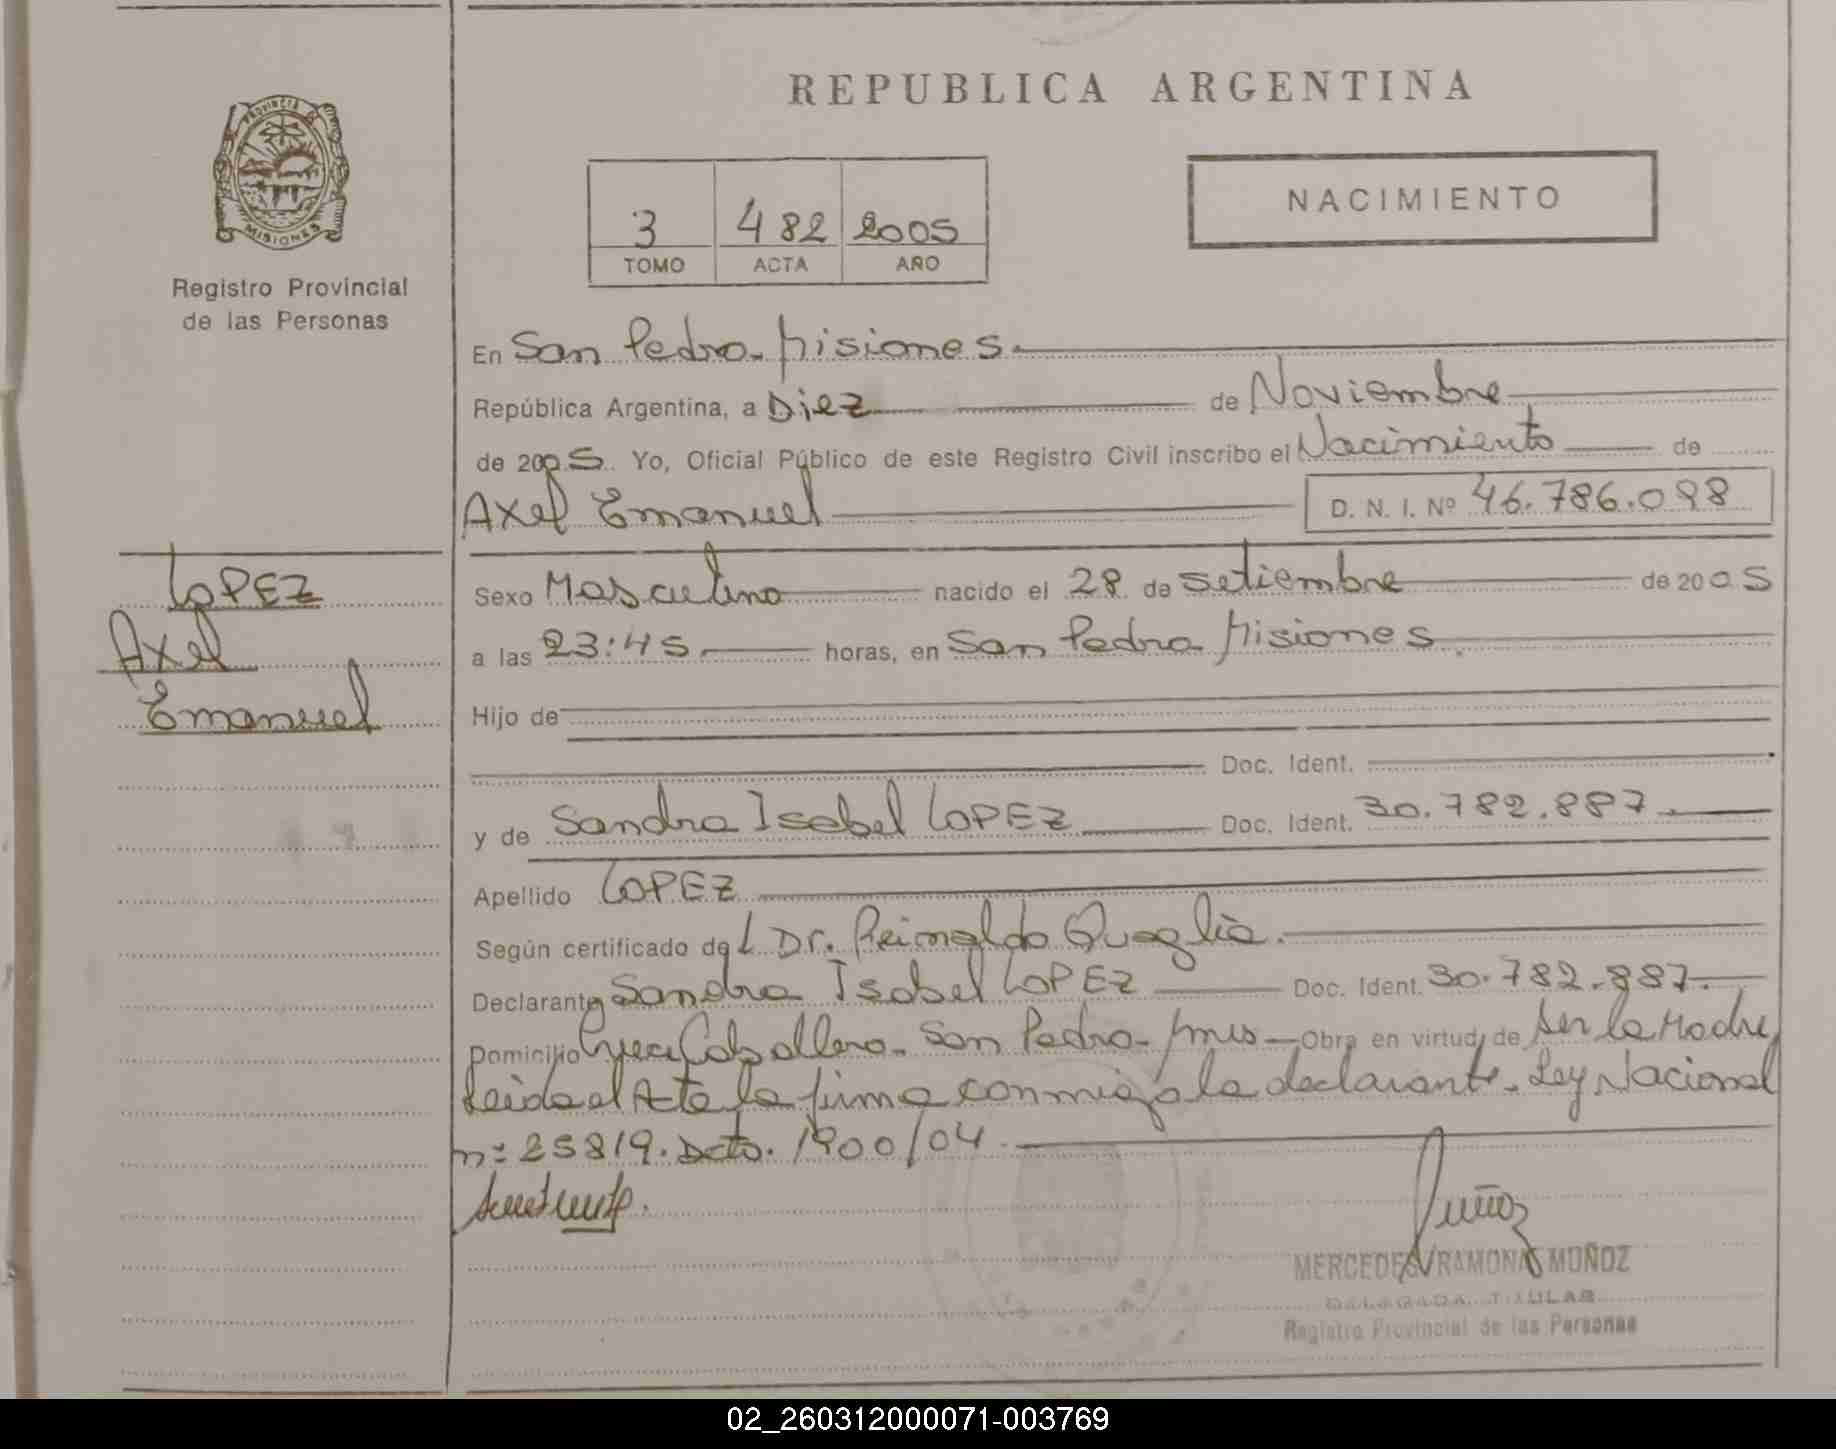 REPUBLICA ARGENTINA
PROVINCIA
MISIONES
Registro Provincial
de las Personas
NACIMIENTO
3 482 2005
TOMO ACTA AÑO
En San Pedro - Misiones.
República Argentina, a Diez de Noviembre
de 2005 Yo, Oficial Público de este Registro Civil inscribo el Nacimiento de
Axel Emanuel D. N. I. Nº 46.786.098
LOPEZ
Axel
Emanuel
Sexo Masculino nacido el 28 de Setiembre de 2005
a las 23:45 horas, en San Pedro Misiones
Hijo de
Doc. Ident.
y de Sandra Isabel LOPEZ Doc. Ident. 30.782.887
Apellido LOPEZ
Según certificado del Dr. Reinaldo Quaglia.
Declarante Sandra Isabel LOPEZ Doc. Ident. 30.782.887.
Domicilio Caballero - San Pedro - Mnes Obra en virtud de ser la Madre
Leida el Acta la firma conmigo la declarante. Ley Nacional
nº 25819. Dcto. 1900/04.
Muñoz
MERCEDES RAMONA MUÑOZ
DELEGADA TITULAR
Registro Provincial de las Personas
02_260312000071-003769